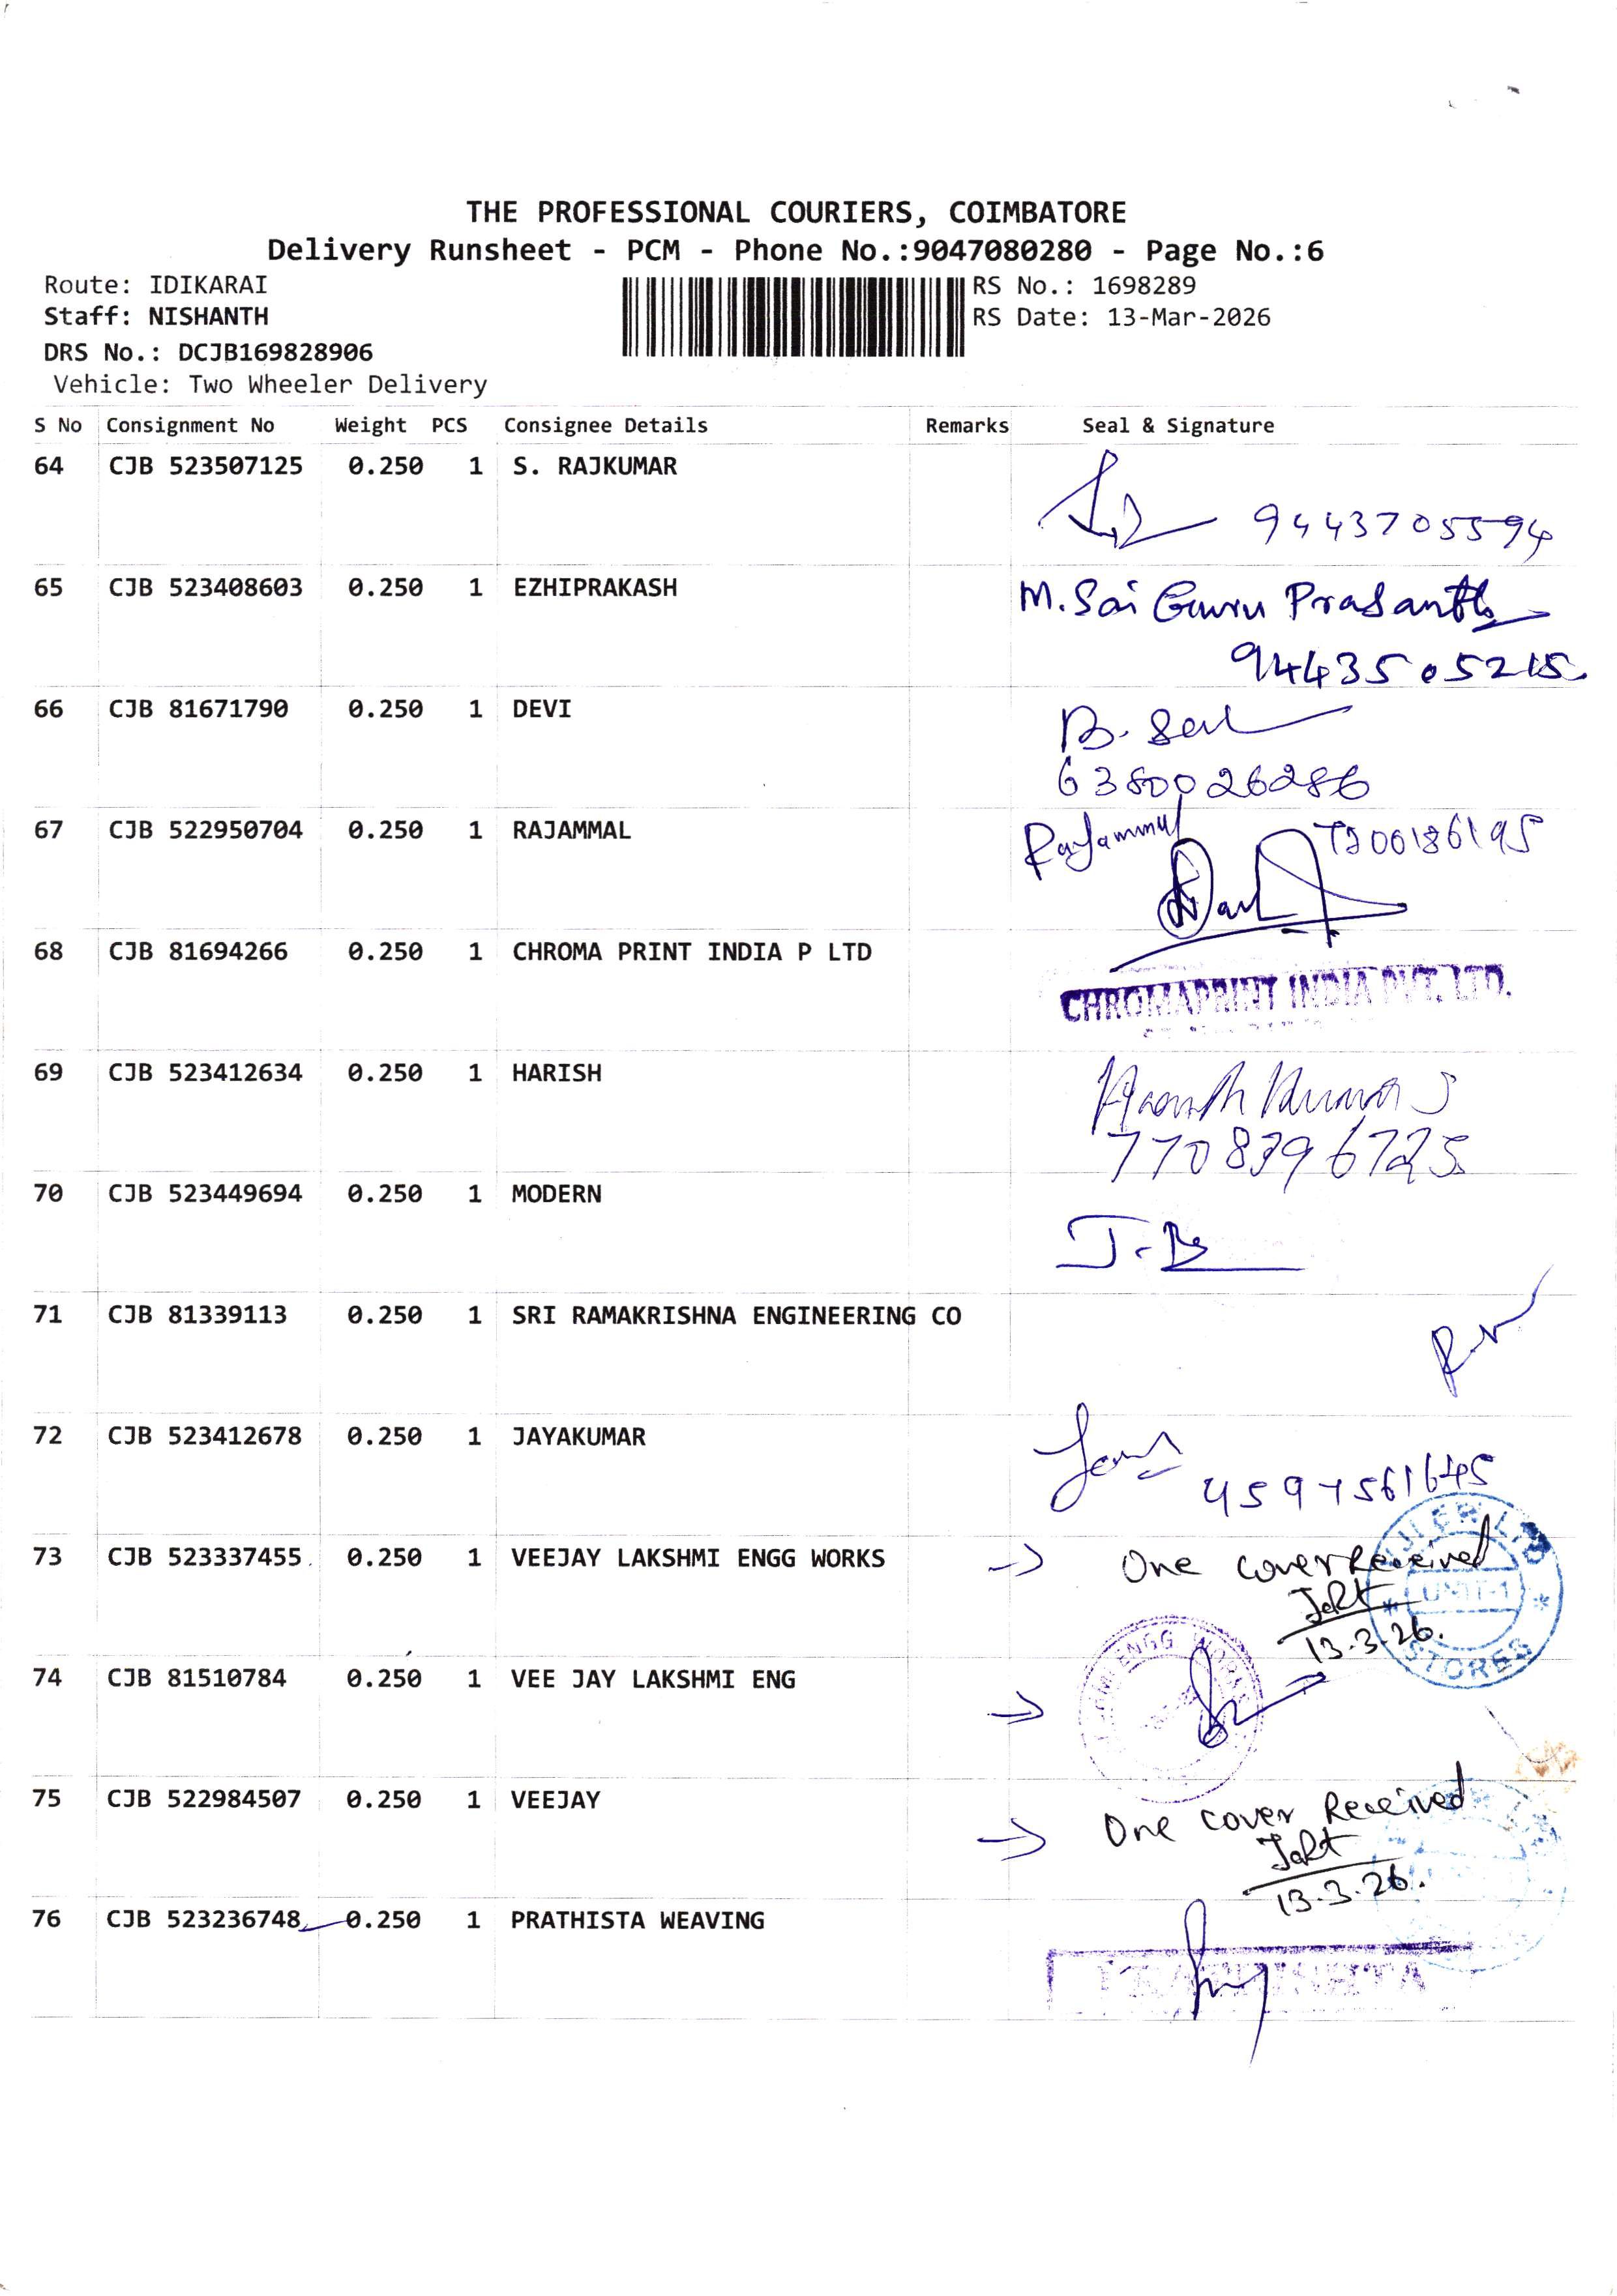 THE PROFESSIONAL COURIERS, COIMBATORE
Delivery Runsheet - PCM - Phone No.:9047080280 - Page No.:6
Route: IDIKARAI
RS No.: 1698289
Staff: NISHANTH
RS Date: 13-Mar-2026
DRS No.: DCJB169828906
Vehicle: Two Wheeler Delivery
S No Consignment No Weight PCS Consignee Details Remarks Seal & Signature
64 CJB 523507125 0.250 1 S. RAJKUMAR
9443705594
65 CJB 523408603 0.250 1 EZHIPRAKASH
M. Sai Guru Prasanth
9443505215
66 CJB 81671790 0.250 1 DEVI
B.
6380026286
67 CJB 522950704 0.250 1 RAJAMMAL
Rajammal
68 CJB 81694266 0.250 1 CHROMA PRINT INDIA P LTD
CHROMAPRINT INDIA PVT. LTD.
69 CJB 523412634 0.250 1 HARISH
Kumar S
7708396725
70 CJB 523449694 0.250 1 MODERN
71 CJB 81339113 0.250 1 SRI RAMAKRISHNA ENGINEERING CO
72 CJB 523412678 0.250 1 JAYAKUMAR
73 CJB 523337455 0.250 1 VEEJAY LAKSHMI ENGG WORKS
-> One cover Received
13-3-26.
UNIT-1
STORES
74 CJB 81510784 0.250 1 VEE JAY LAKSHMI ENG
->
ENGG WORKS
75 CJB 522984507 0.250 1 VEEJAY
-> One cover Received
13-3-26.
76 CJB 523236748 0.250 1 PRATHISTA WEAVING